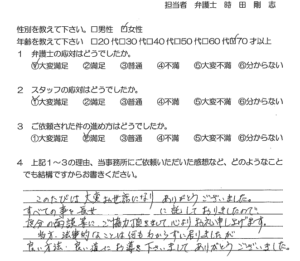 担当者 弁護士 時田剛志
性別を教えて下さい。 □男性 ☑女性
年齢を教えて下さい □20代□30代□40代□50代□60代☑70才以上
1 弁護士の応対はどうでしたか。
①大変満足 ②満足 ③普通 ④不満 ⑤大変不満 ⑥分からない
2 スタッフの応対はどうでしたか。
①大変満足 ②満足 ③普通 ④不満 ⑤大変不満 ⑥分からない
3 ご依頼された件の進め方はどうでしたか。
①大変満足 ②満足 ③普通 ④不満 ⑤大変不満 ⑥分からない
4 上記1~3の理由、当事務所にご依頼いただいた感想など、どのようなこと
でも結構ですからお書きください。
このたびは大変お世話になり ありがとうございました。
すべての事を に託しておりましたので、
ご協力頂きまして心よりお礼申し上げます。
法律的なことは何もわからずに居りましたが
良い方法、良い道にお導き下さいまして ありがとうございました。